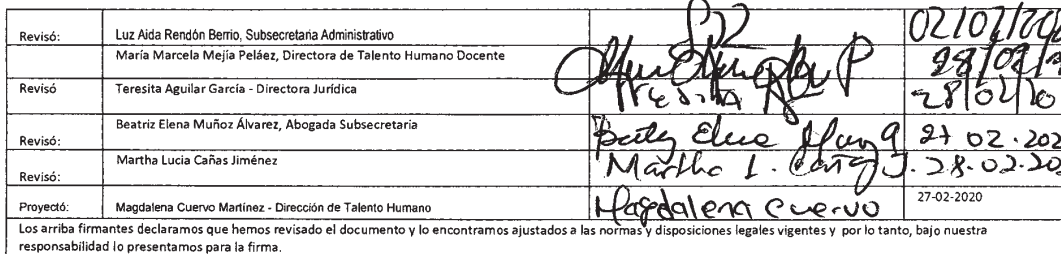 Revisó: Luz Aida Rendón Berrio, Subsecretaria Administrativo
María Marcela Mejía Peláez, Directora de Talento Humano Docente
Revisó Teresita Aguilar García - Directora Jurídica Teresita 28/02/20
Beatriz Elena Muñoz Álvarez, Abogada Subsecretaria
Revisó: 27 02.202
Martha Lucia Cañas Jiménez Martha L. Cañas J. 28.02.202
Revisó:
Proyectó: Magdalena Cuervo Martínez - Dirección de Talento Humano Magdalena Cuervo 27-02-2020
Los arriba firmantes declaramos que hemos revisado el documento y lo encontramos ajustados a las normas y disposiciones legales vigentes y por lo tanto, bajo nuestra
responsabilidad lo presentamos para la firma.